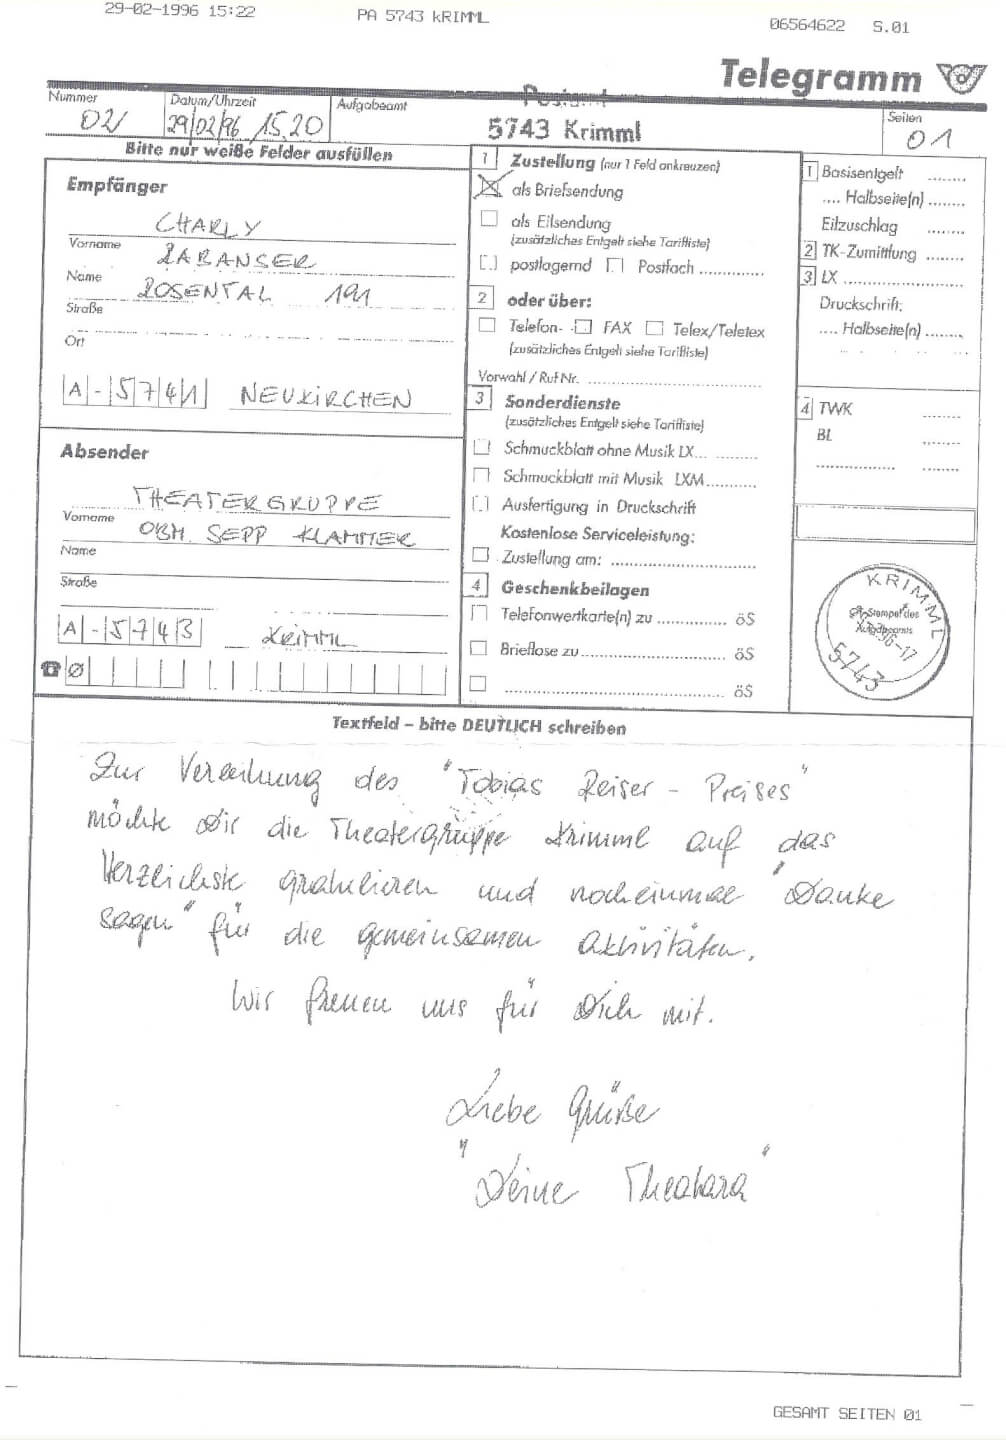 29-02-1996 15:22 PA 5743 KRIMML 06564622 S.01
Telegramm
Nummer Datum/Uhrzeit Aufgabeamt Postamt Seiten
02 29/02/96 15.20 5743 Krimml 01
Bitte nur weiße Felder ausfüllen
Empfänger
CHARLY
Vorname
RABANSER
Name
ROSENTAL 191
Straße
Ort
A-5741 NEUKIRCHEN
Absender
THEATERGRUPPE
Vorname
OBM. SEPP KLAMMER
Name
Straße
A-5743 KRIMML
☎ Ø
1 Zustellung (nur 1 Feld ankreuzen)
als Briefsendung
als Eilsendung
(zusätzliches Entgelt siehe Tarifliste)
postlagernd Postfach .............
2 oder über:
Telefon- FAX Telex/Teletex
(zusätzliches Entgelt siehe Tarifliste)
Vorwahl / Ruf Nr. ..............................
3 Sonderdienste
(zusätzliches Entgelt siehe Tarifliste)
Schmuckblatt ohne Musik LX... ........
Schmuckblatt mit Musik LXM..........
Ausfertigung in Druckschrift
Kostenlose Serviceleistung:
Zustellung am: .............................
4 Geschenkbeilagen
Telefonwertkarte(n) zu .............. öS
Brieflose zu............................. öS
............................................ öS
1 Basisentgelt ........
.... Halbseite(n) ........
Eilzuschlag ........
2 TK-Zumittlung ........
3 LX ........................
Druckschrift:
.... Halbseite(n) ........
4 TWK ........
BL ........
KRIMML
Stempel des
Aufgabeamts
5743
Textfeld – bitte DEUTLICH schreiben
Zur Verleihung des "Tobias Reiser - Preises"
möchte Dir die Theatergruppe Krimml auf das
Herzlichste gratulieren und noch einmal "Danke
sagen" für die gemeinsamen Aktivitäten.
Wir freuen uns für Dich mit.
Liebe Grüße
"Deine Theatara"
GESAMT SEITEN 01